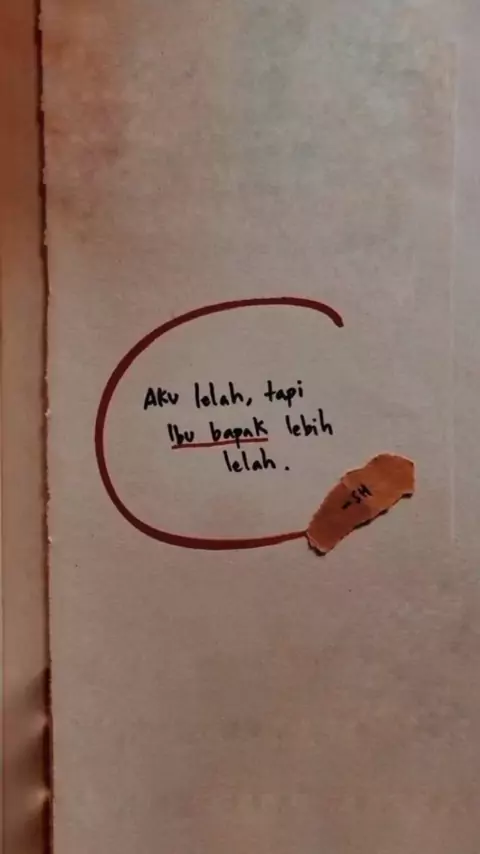 Aku lelah, tapi
Ibu bapak lebih
lelah.
-SH